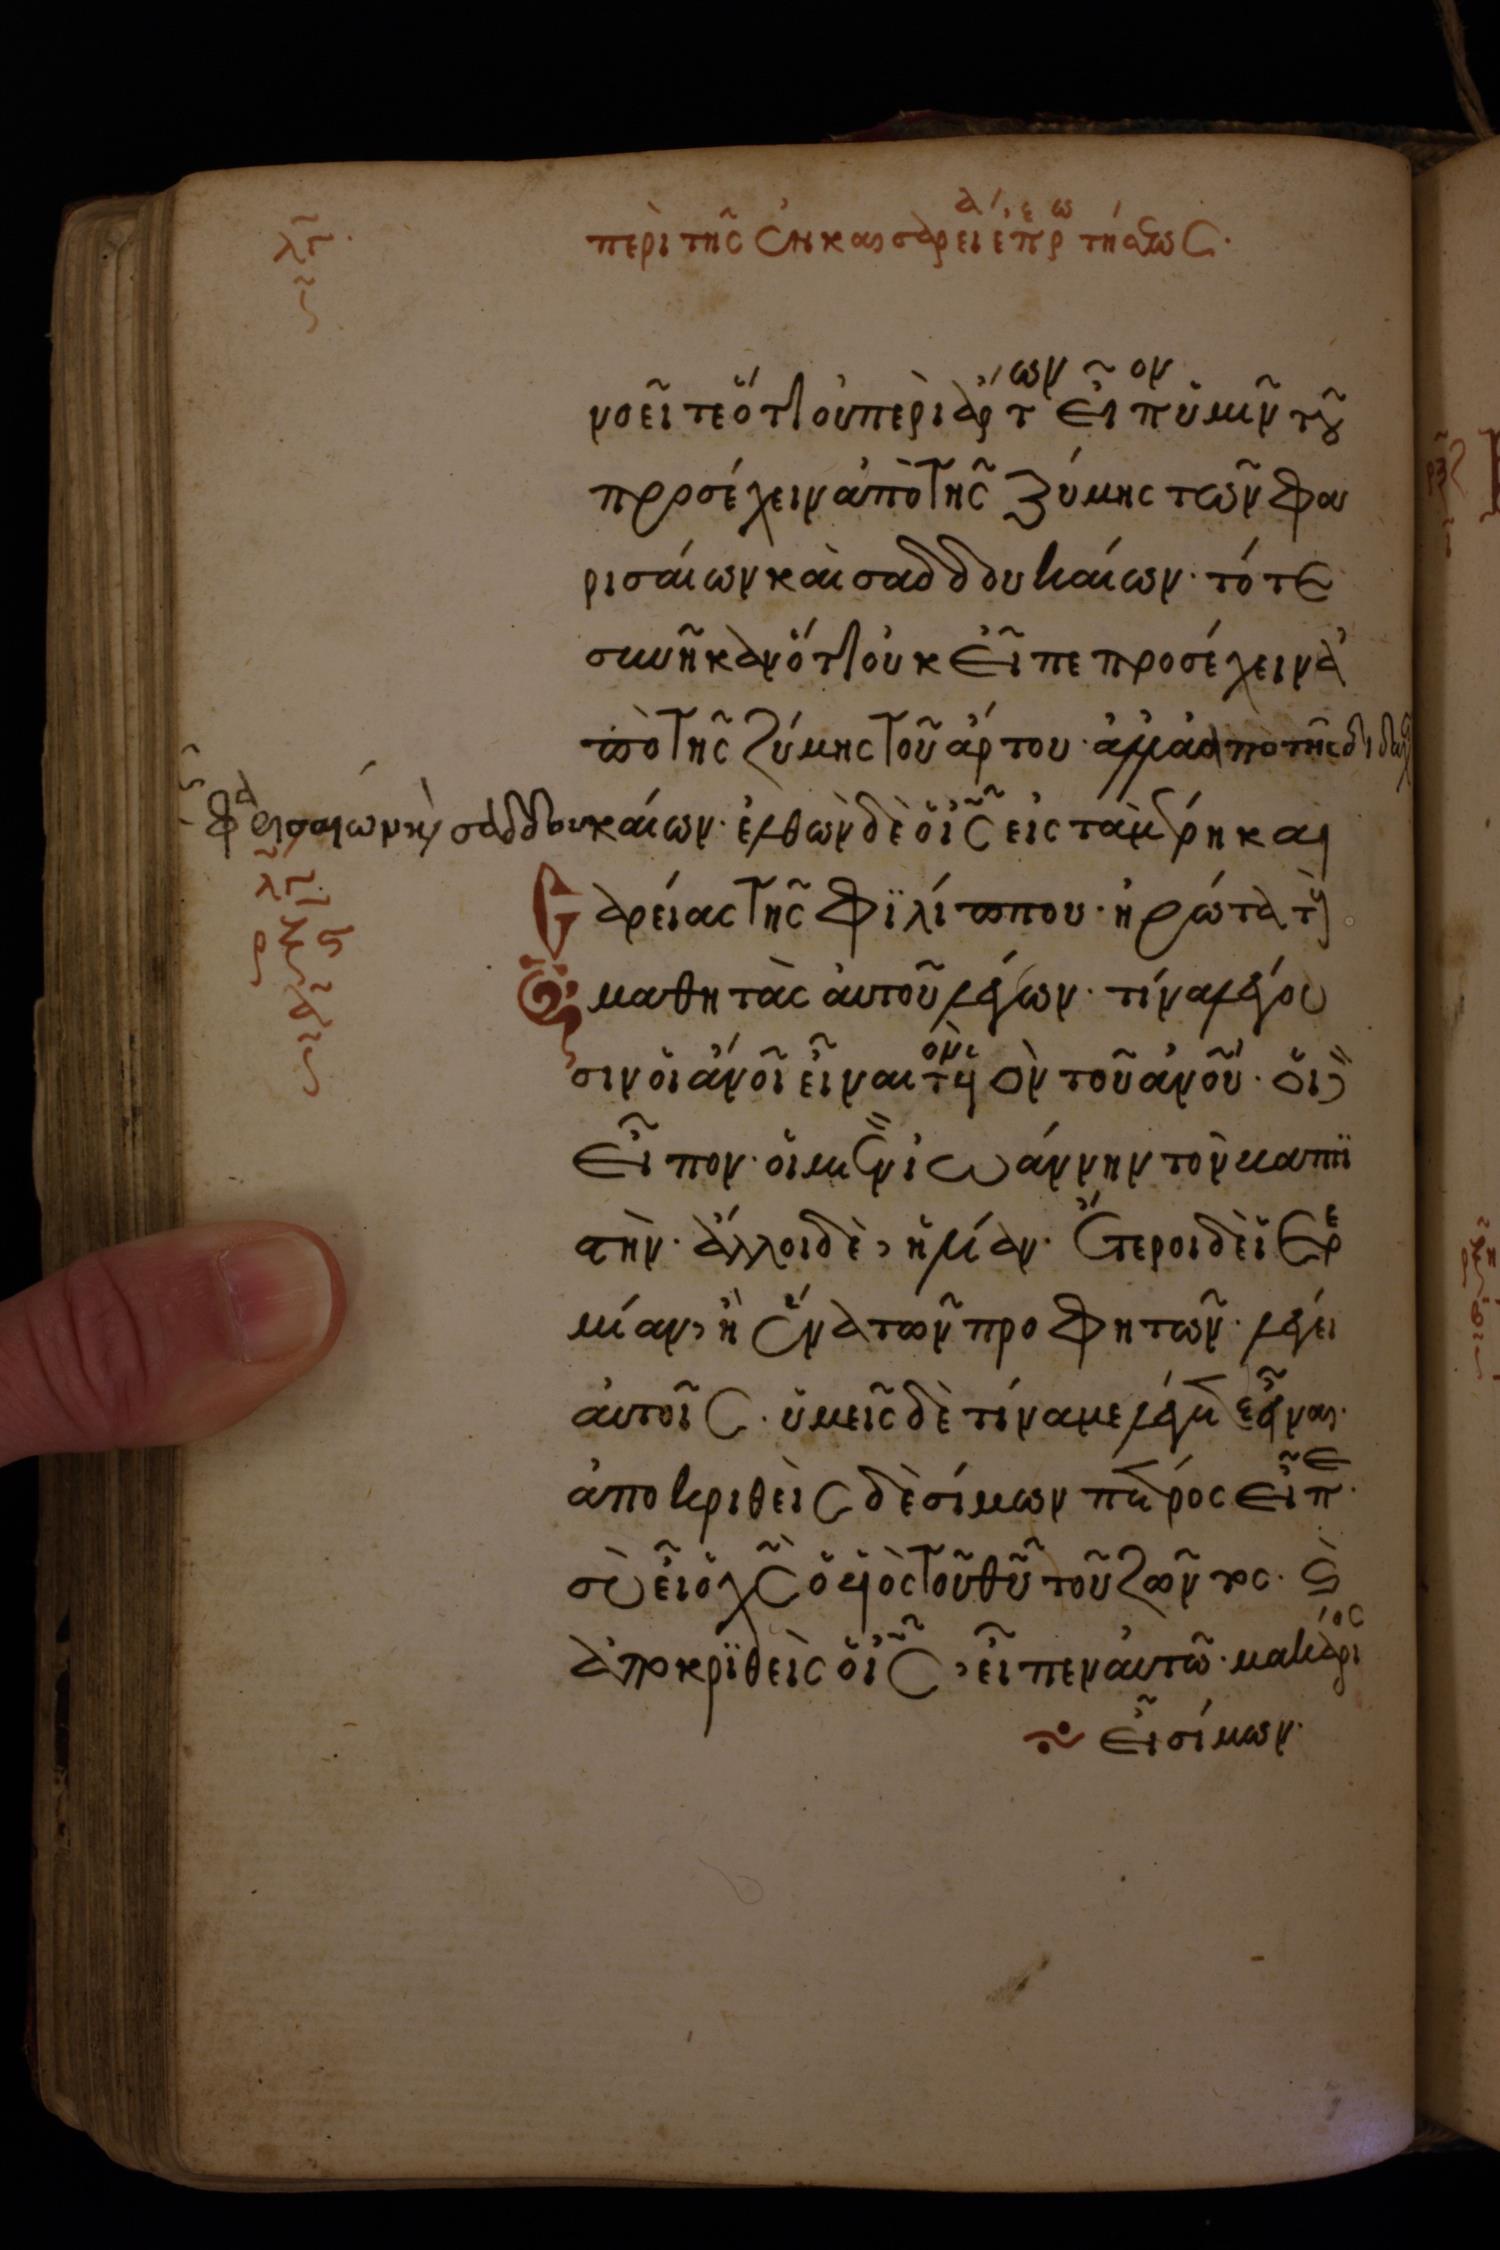 περὶ τῆς ἐν καισαρεία ἐπερωτήσεως.
νοεῖτε ὅτι οὐ περὶ ἄρτων εἶπον ὑμῖν τοῦ
προσέχειν ἀπὸ τῆς ζύμης τῶν φα
ρισαίων καὶ σαδδουκαίων· τότε
συνῆκαν ὅτι οὐκ εἶπε προσέχειν ἀ
πὸ τῆς ζύμης τοῦ ἄρτου· ἀλλὰ ἀπὸ τῆς διδαχῆς
φαρισαίων καὶ σαδδουκαίων· ἐλθὼν δὲ ὁ ἰς εἰς τὰ μέρη και
σαρείας τῆς φιλίππου· ἠρώτα τοὺς
μαθητὰς αὐτοῦ λέγων· τίνα με λέγου
σιν οἱ ἄνοι εἶναι τὸν υἱὸν τοῦ ἀνου· οἱ δὲ
εἶπον· οἱ μὲν ἰωάννην τὸν βαπτι
στὴν· ἄλλοι δὲ, ἠλίαν· ἕτεροι δὲ ἱερε
μίαν, ἢ ἕνα τῶν προφητῶν· λέγει
αὐτοῖς· ὑμεῖς δὲ τίνα με λέγετε εἶναι·
ἀποκριθεὶς δὲ σίμων πέτρος εἶπε·
σὺ εἶ ὁ χς ὁ υἱὸς τοῦ θυ τοῦ ζῶντος· καὶ
ἀποκριθεὶς ὁ ἰς, εἶπεν αὐτῶ· μακάριος
εἶ σίμων·